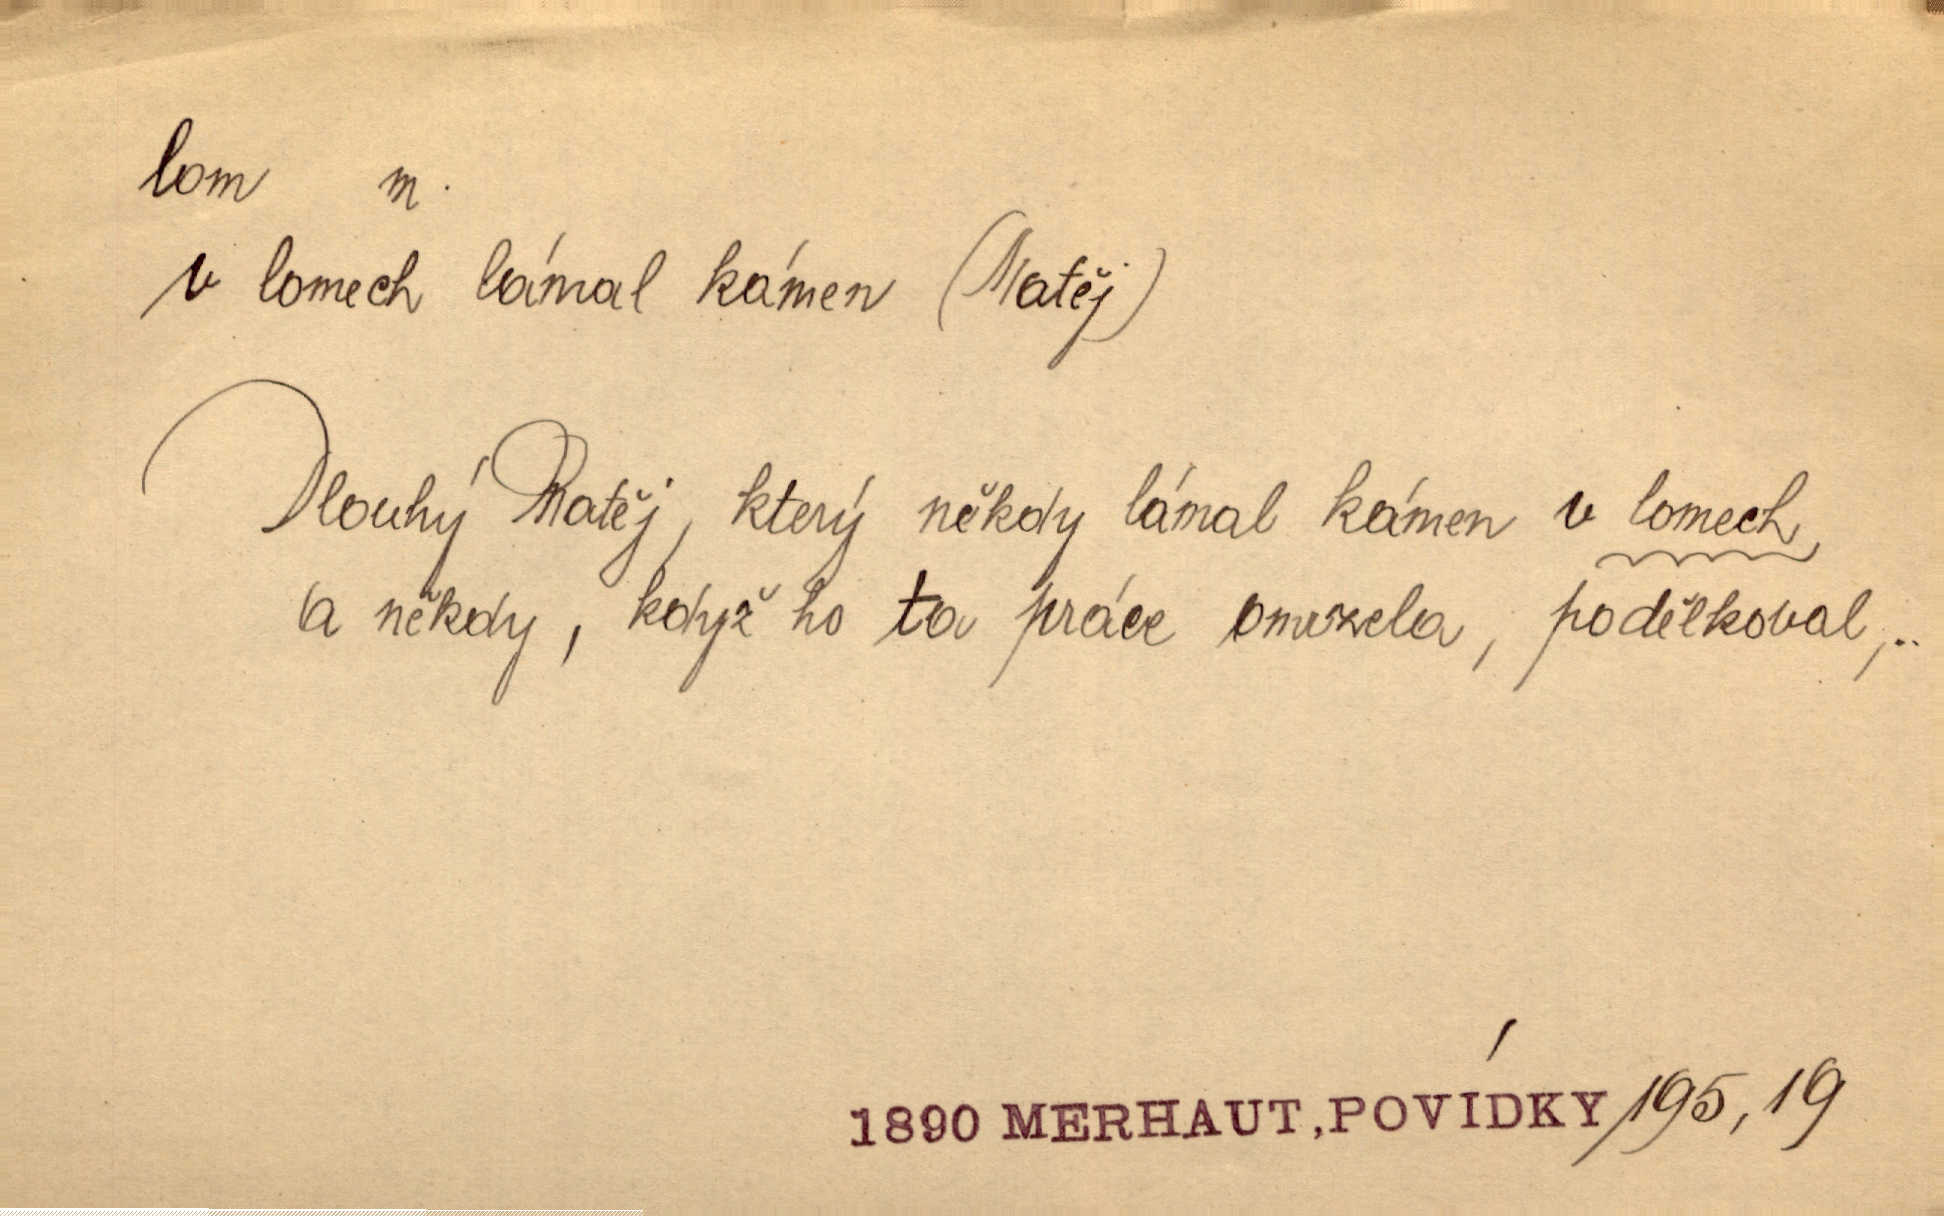 lom m.
v lomech lámal kámen (Matěj)
Dlouhý Matěj, který někdy lámal kámen v lomech
a někdy, když ho ta práce omrzela, poděkoval,..
1890 MERHAUT, POVÍDKY 195, 19